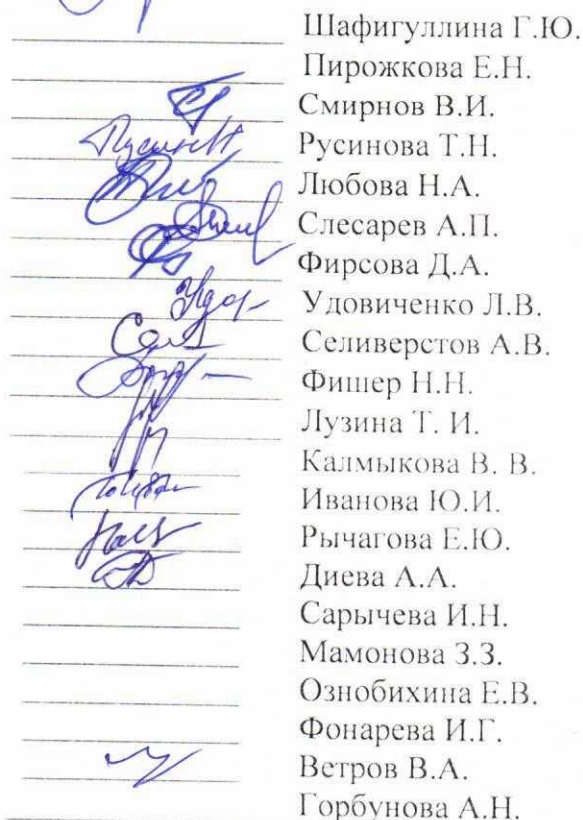 Шафигуллина Г.Ю.
Пирожкова Е.Н.
Смирнов В.И.
Русинова Т.Н.
Любова Н.А.
Слесарев А.П.
Фирсова Д.А.
Удовиченко Л.В.
Селиверстов А.В.
Фишер Н.Н.
Лузина Т. И.
Калмыкова В. В.
Иванова Ю.И.
Рычагова Е.Ю.
Диева А.А.
Сарычева И.Н.
Мамонова З.З.
Ознобихина Е.В.
Фонарева И.Г.
Ветров В.А.
Горбунова А.Н.